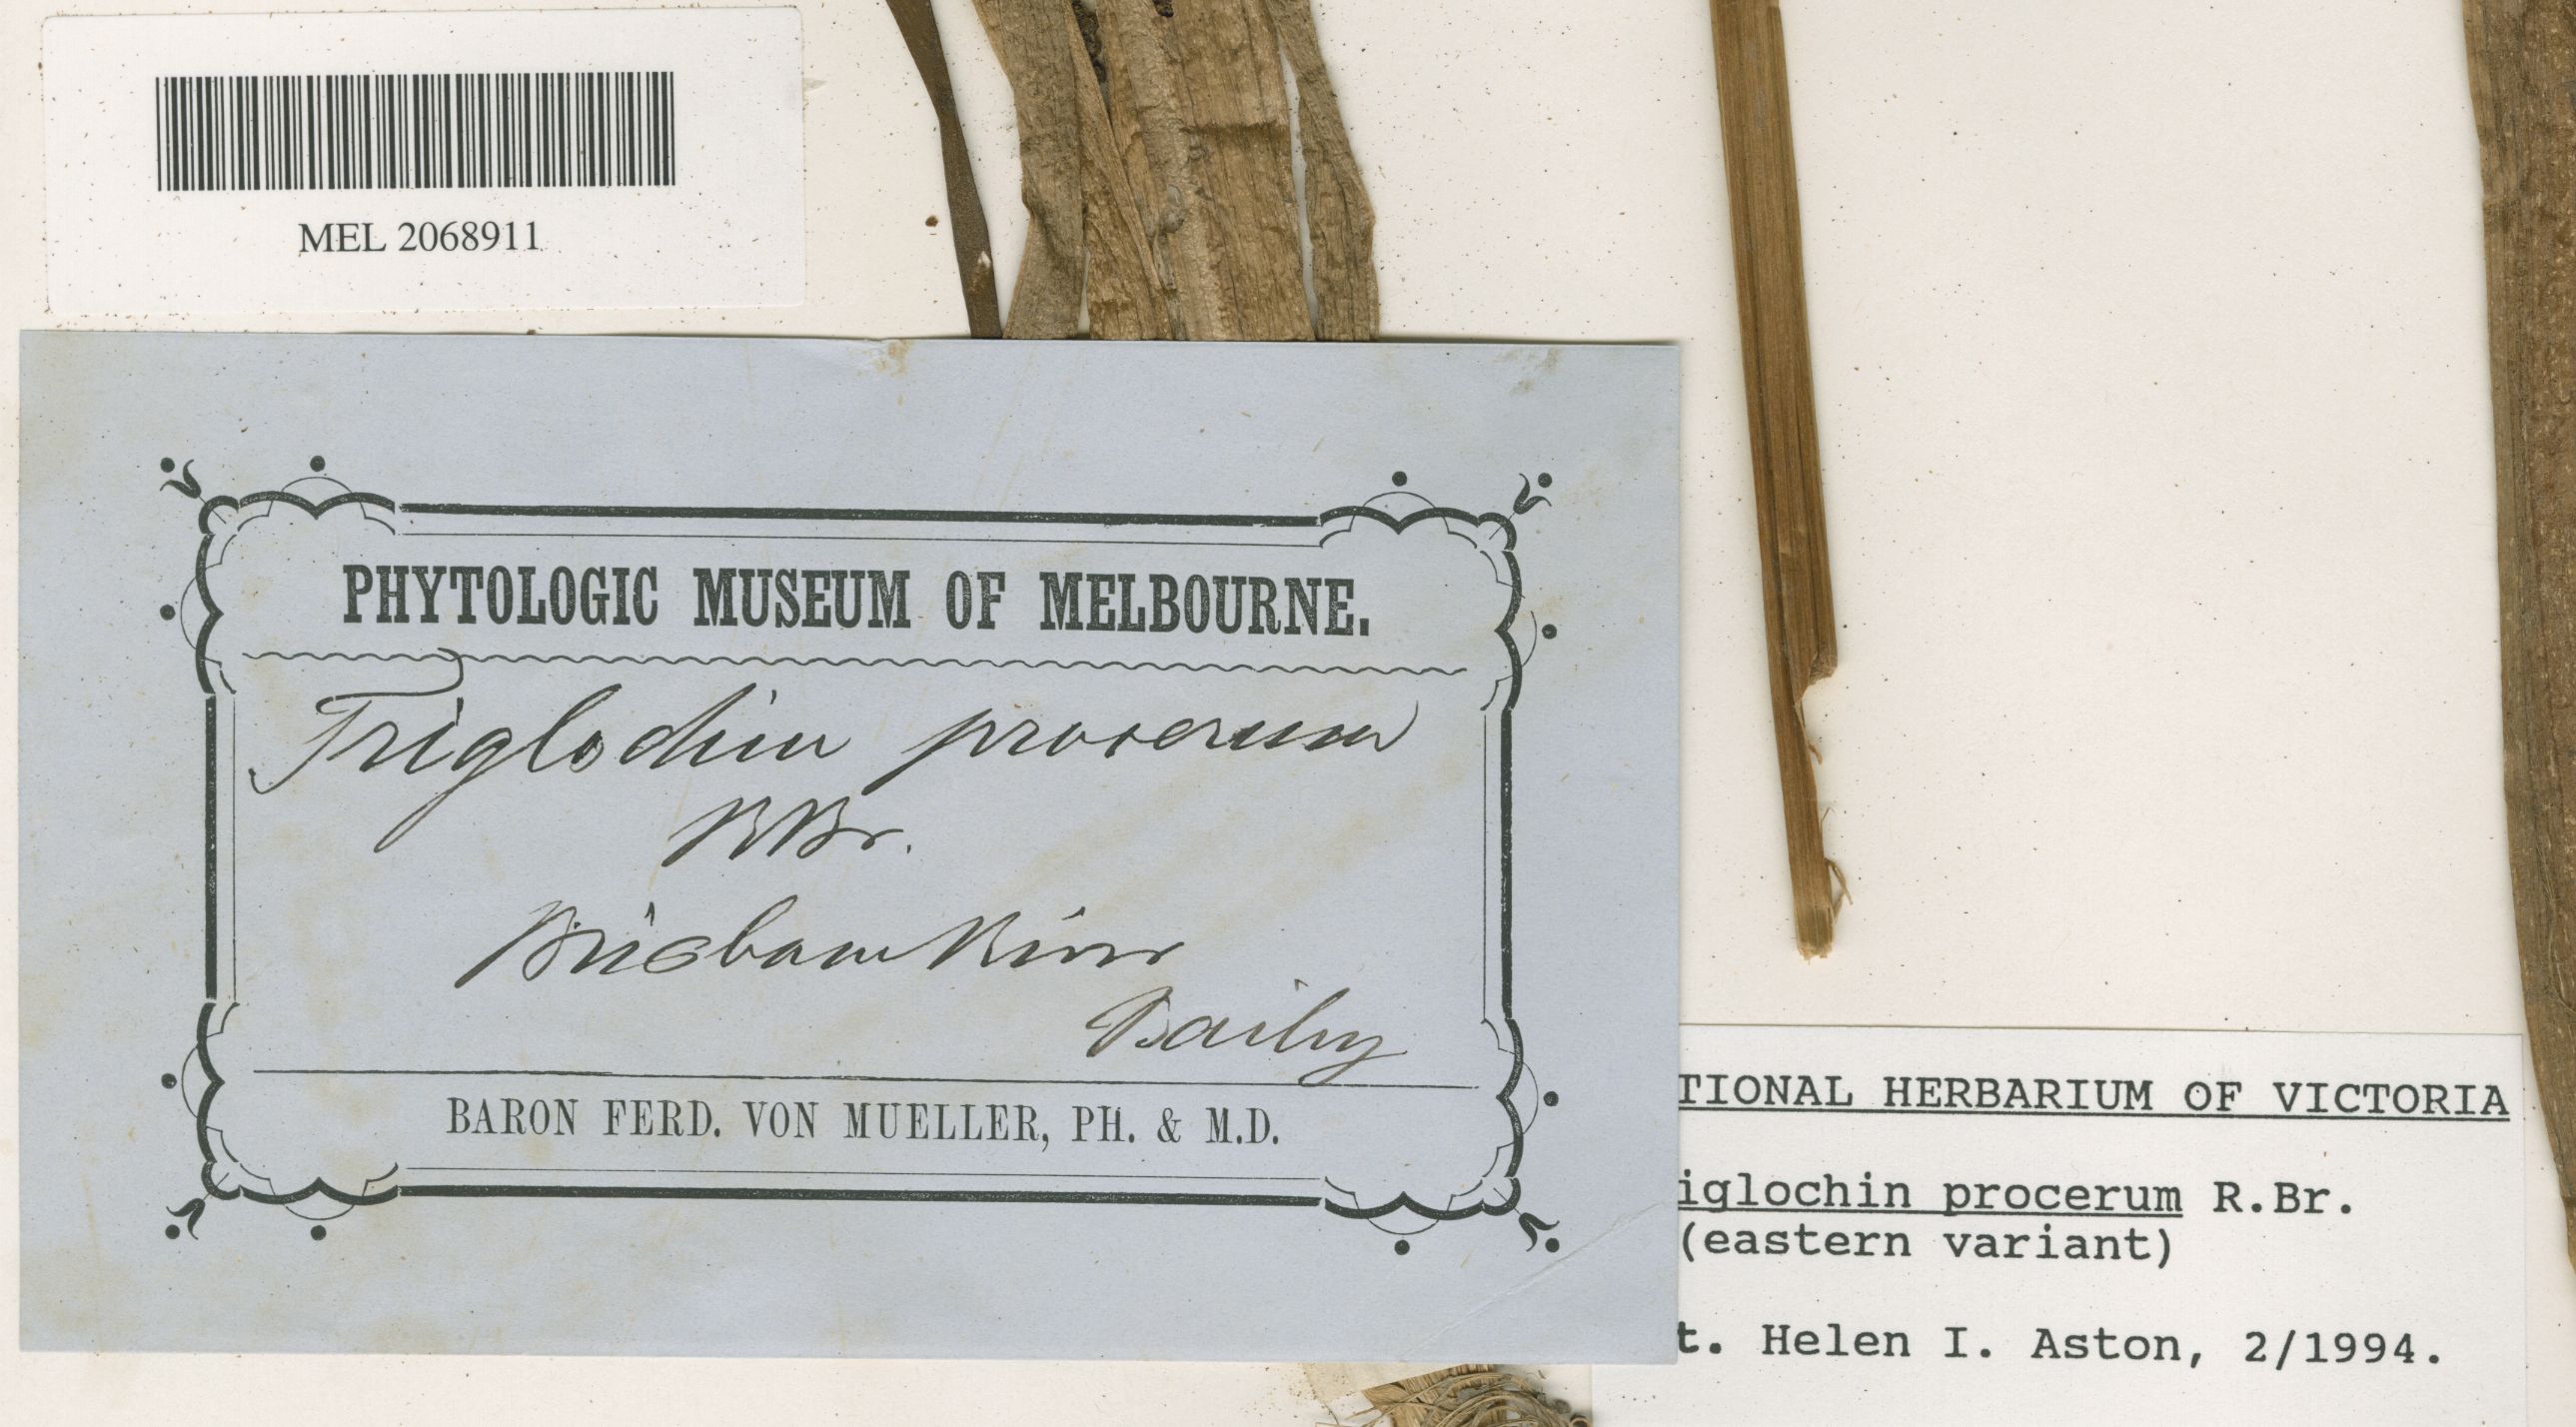 MEL 2068911
PHYTOLOGIC MUSEUM OF MELBOURNE.
Triglochin procerum
RBr.
Brisbane River
Bailey
BARON FERD. VON MUELLER, PH. & M.D.
TIONAL HERBARIUM OF VICTORIA
iglochin procerum R.Br.
(eastern variant)
t. Helen I. Aston, 2/1994.